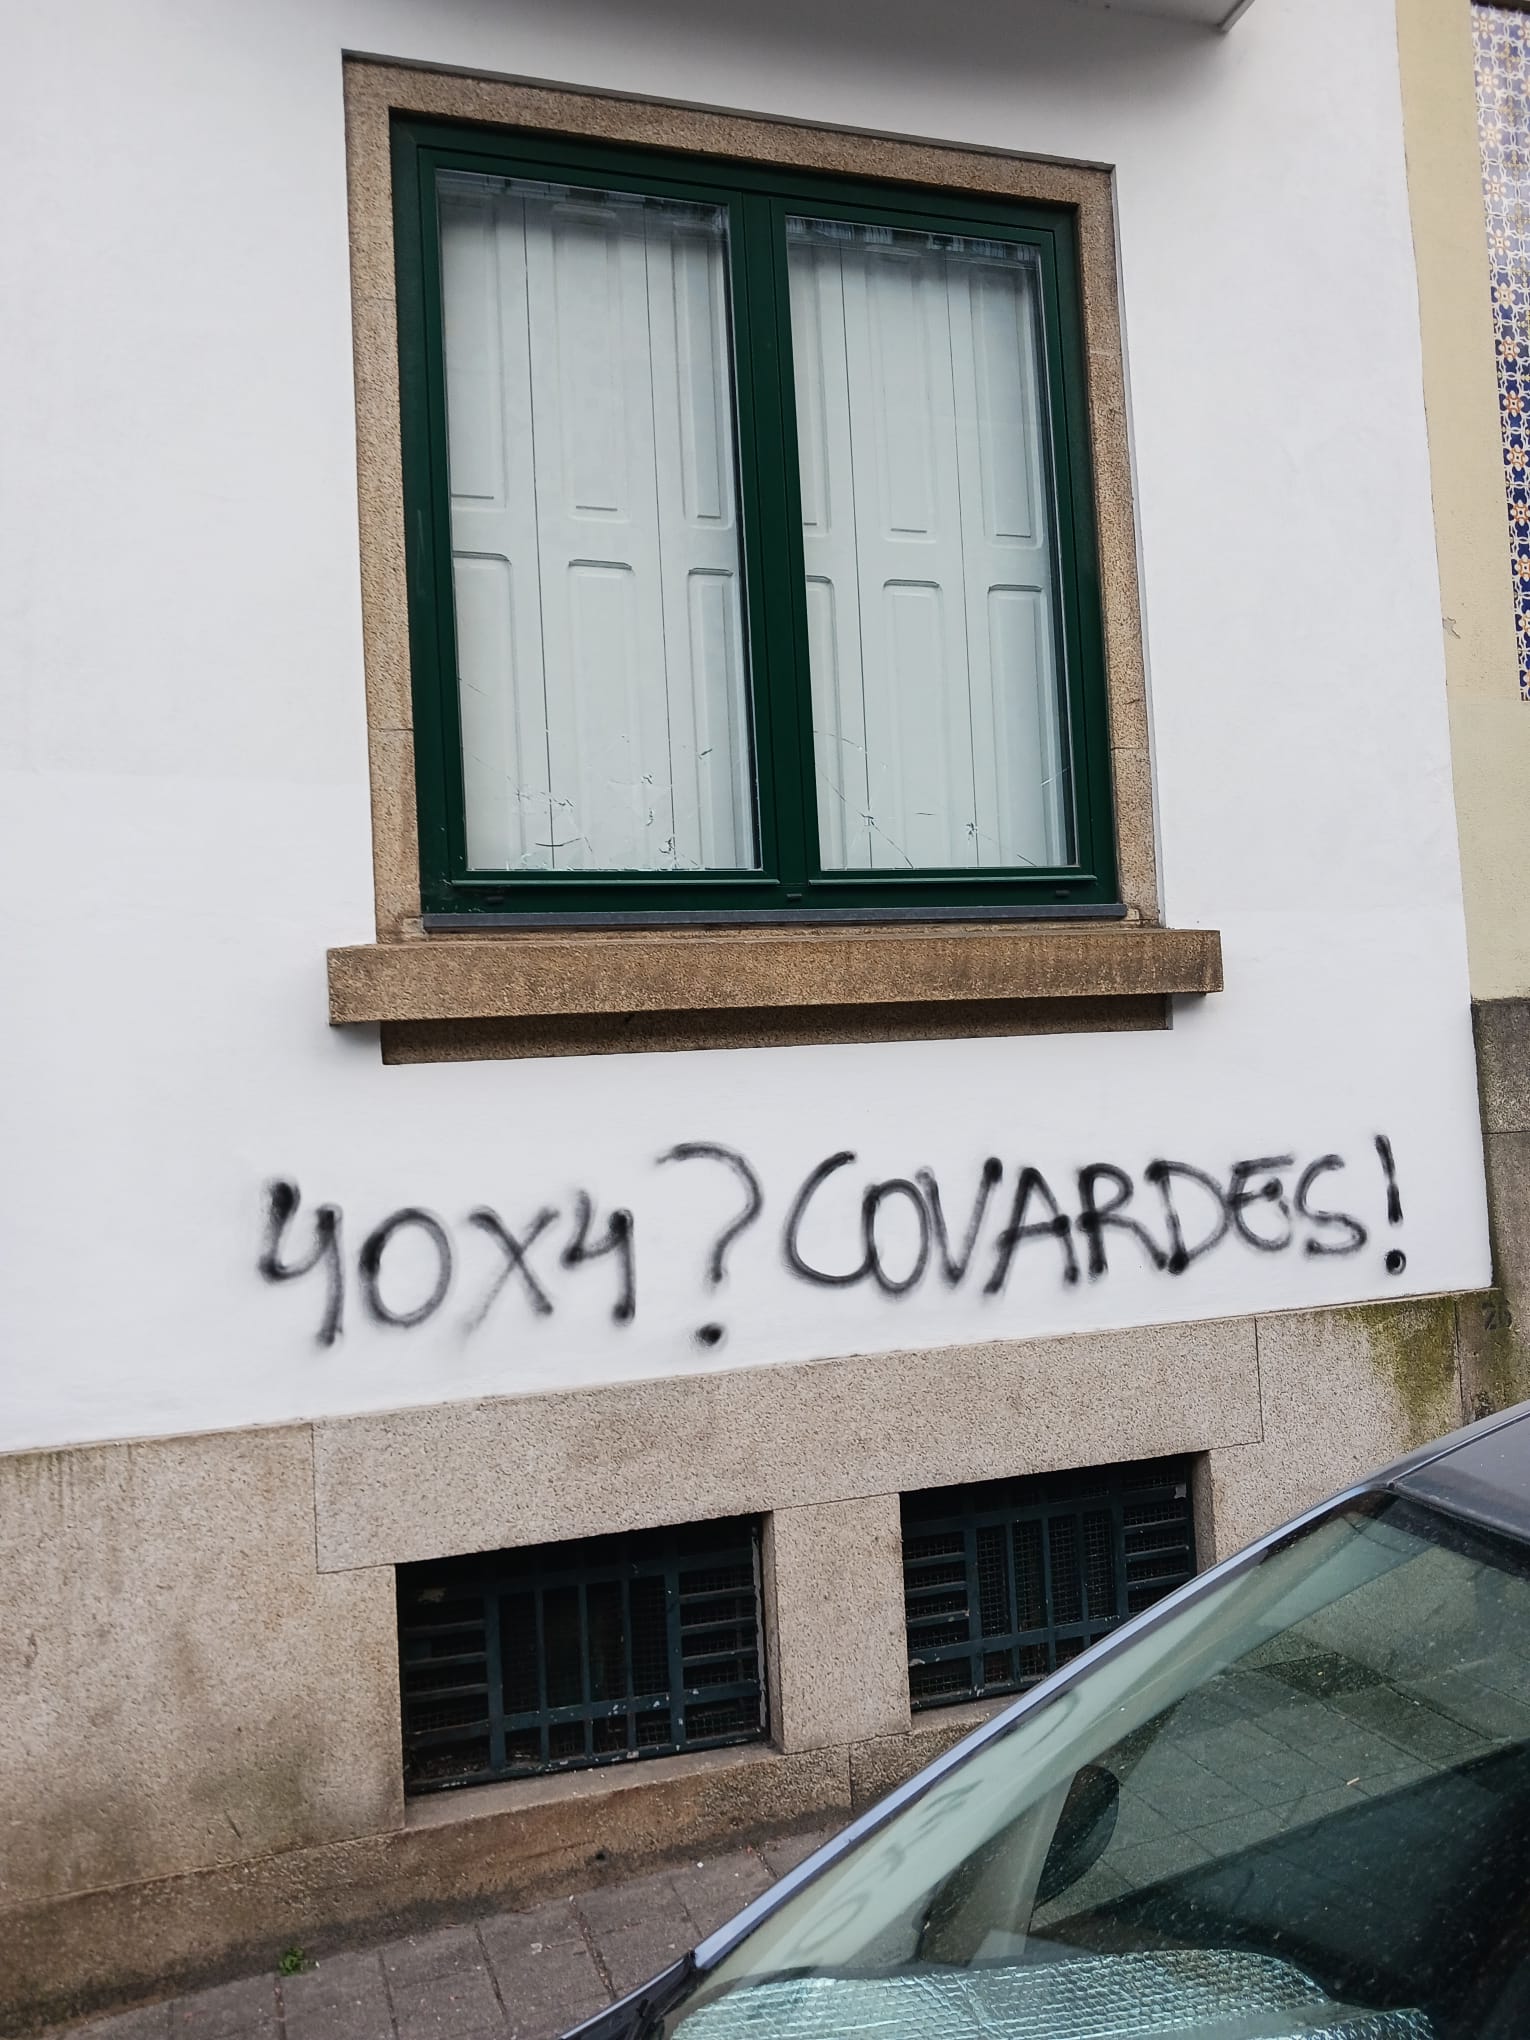 40X4? COVARDES!
26